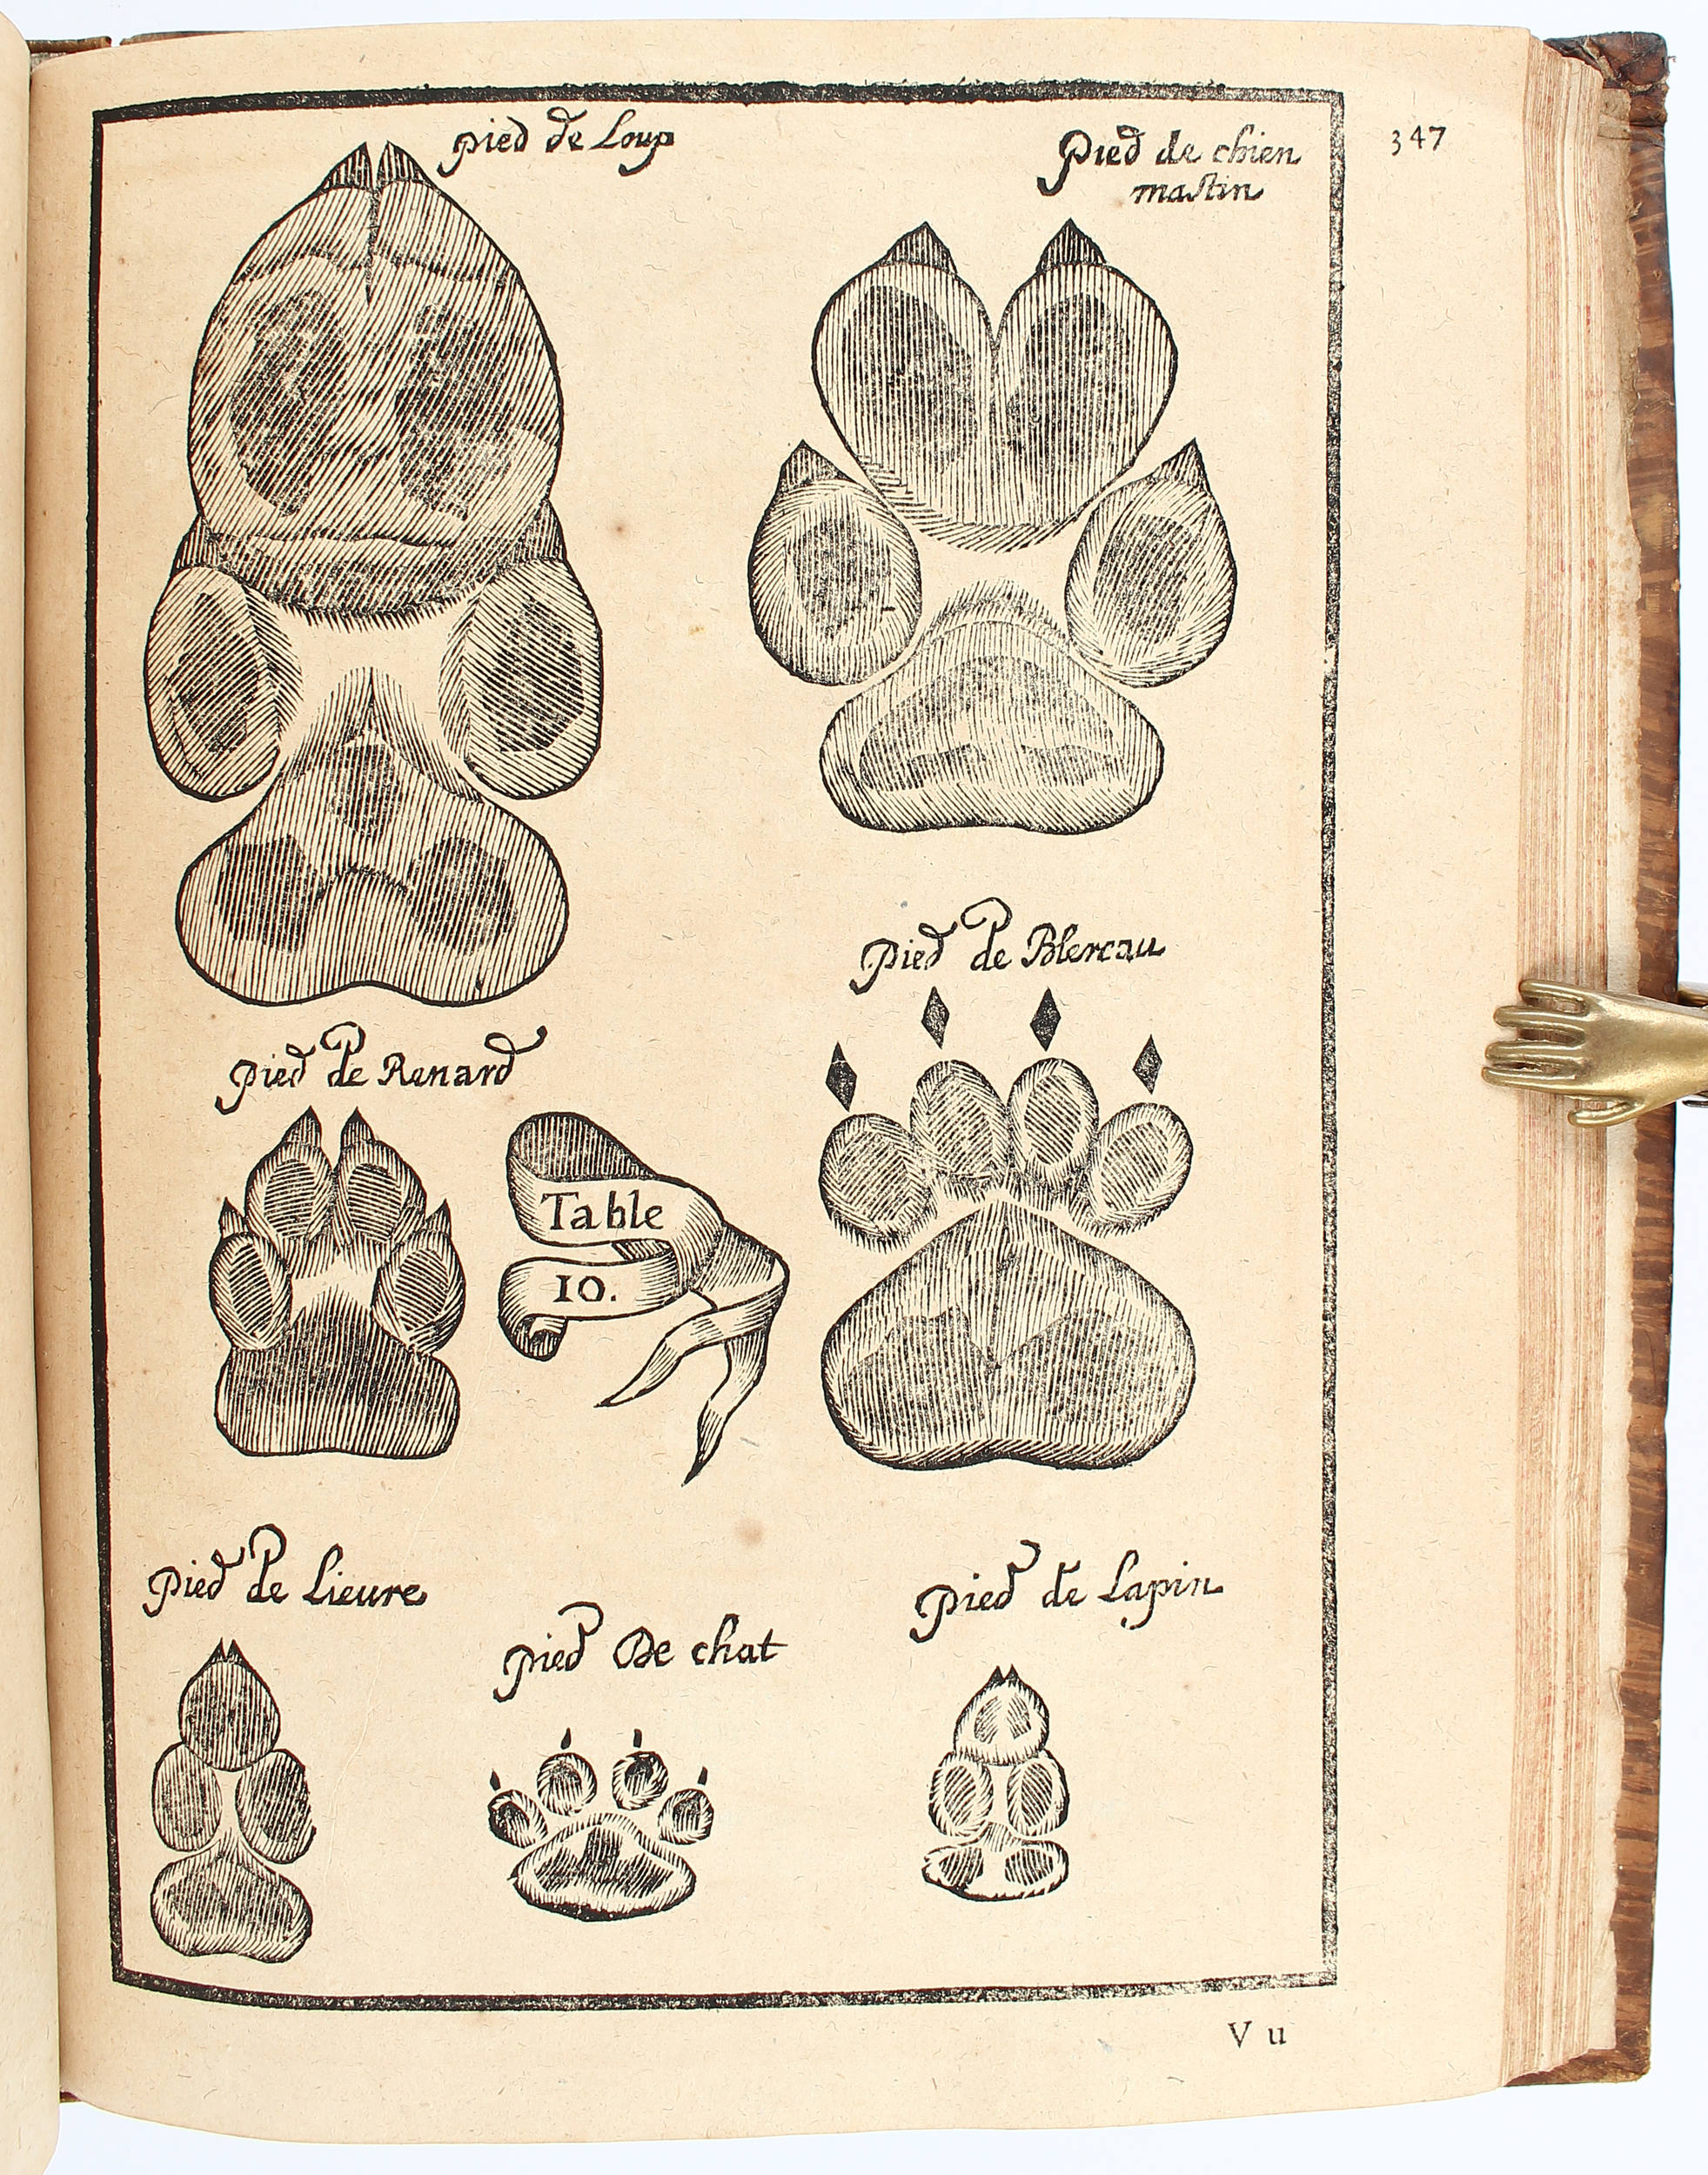 347
pied de Loup
Pied de chien
mastin
Pied de Blereau
Pied de Renard
Table
10.
Pied de Lieure
Pied De chat
Pied de Lapin
V u